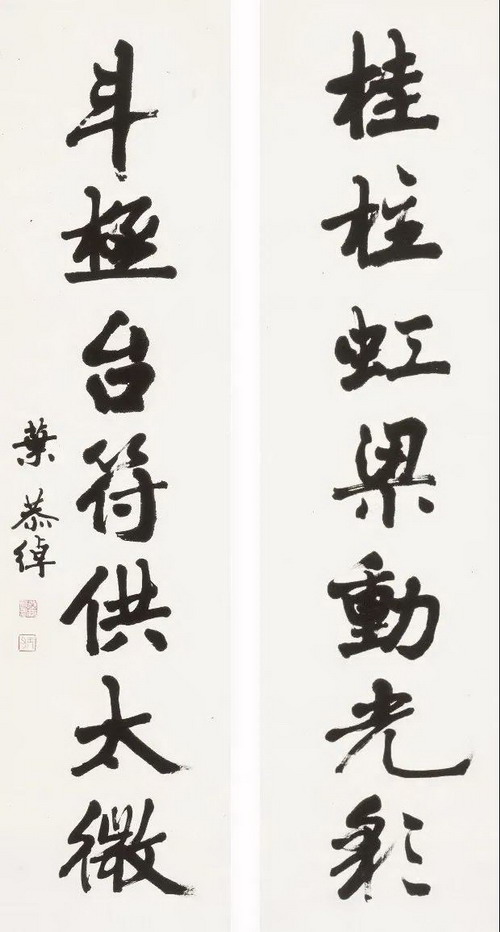 桂柱虹梁動光彩
斗極台符供太微
葉恭綽